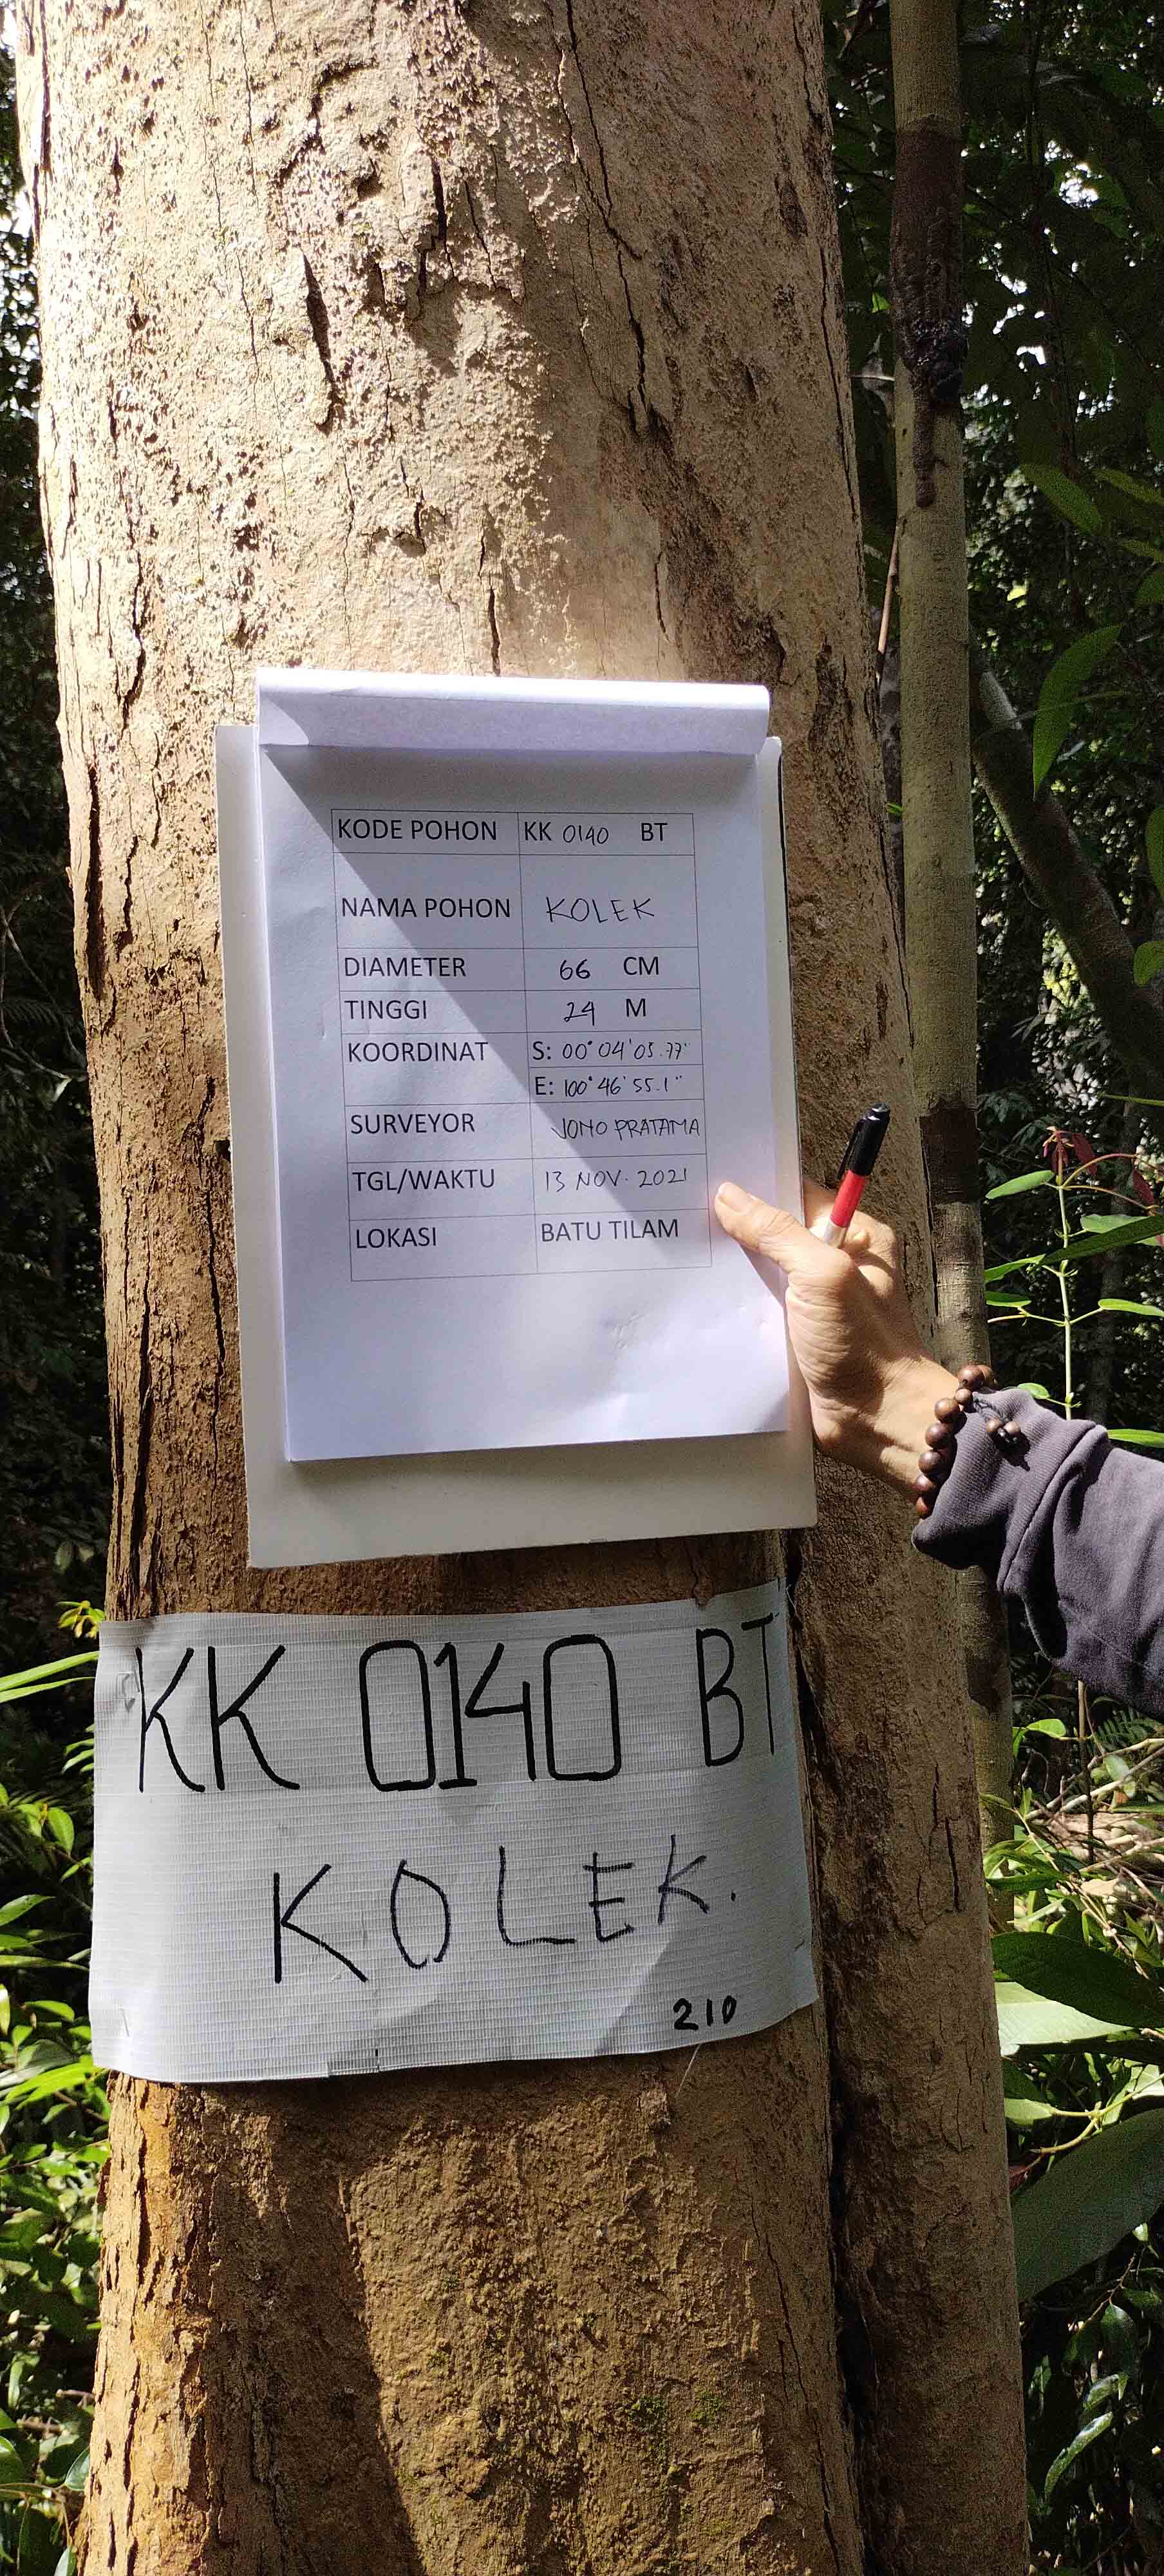 KODE POHON KK 0140 BT
NAMA POHON KOLEK
DIAMETER 66 CM
TINGGI 24 M
KOORDINAT S: 00° 04' 05.77"
E: 100° 46' 55.1"
SURVEYOR JONO PRATAMA
TGL/WAKTU 13 NOV. 2021
LOKASI BATU TILAM
KK 0140 BT
KOLEK.
210